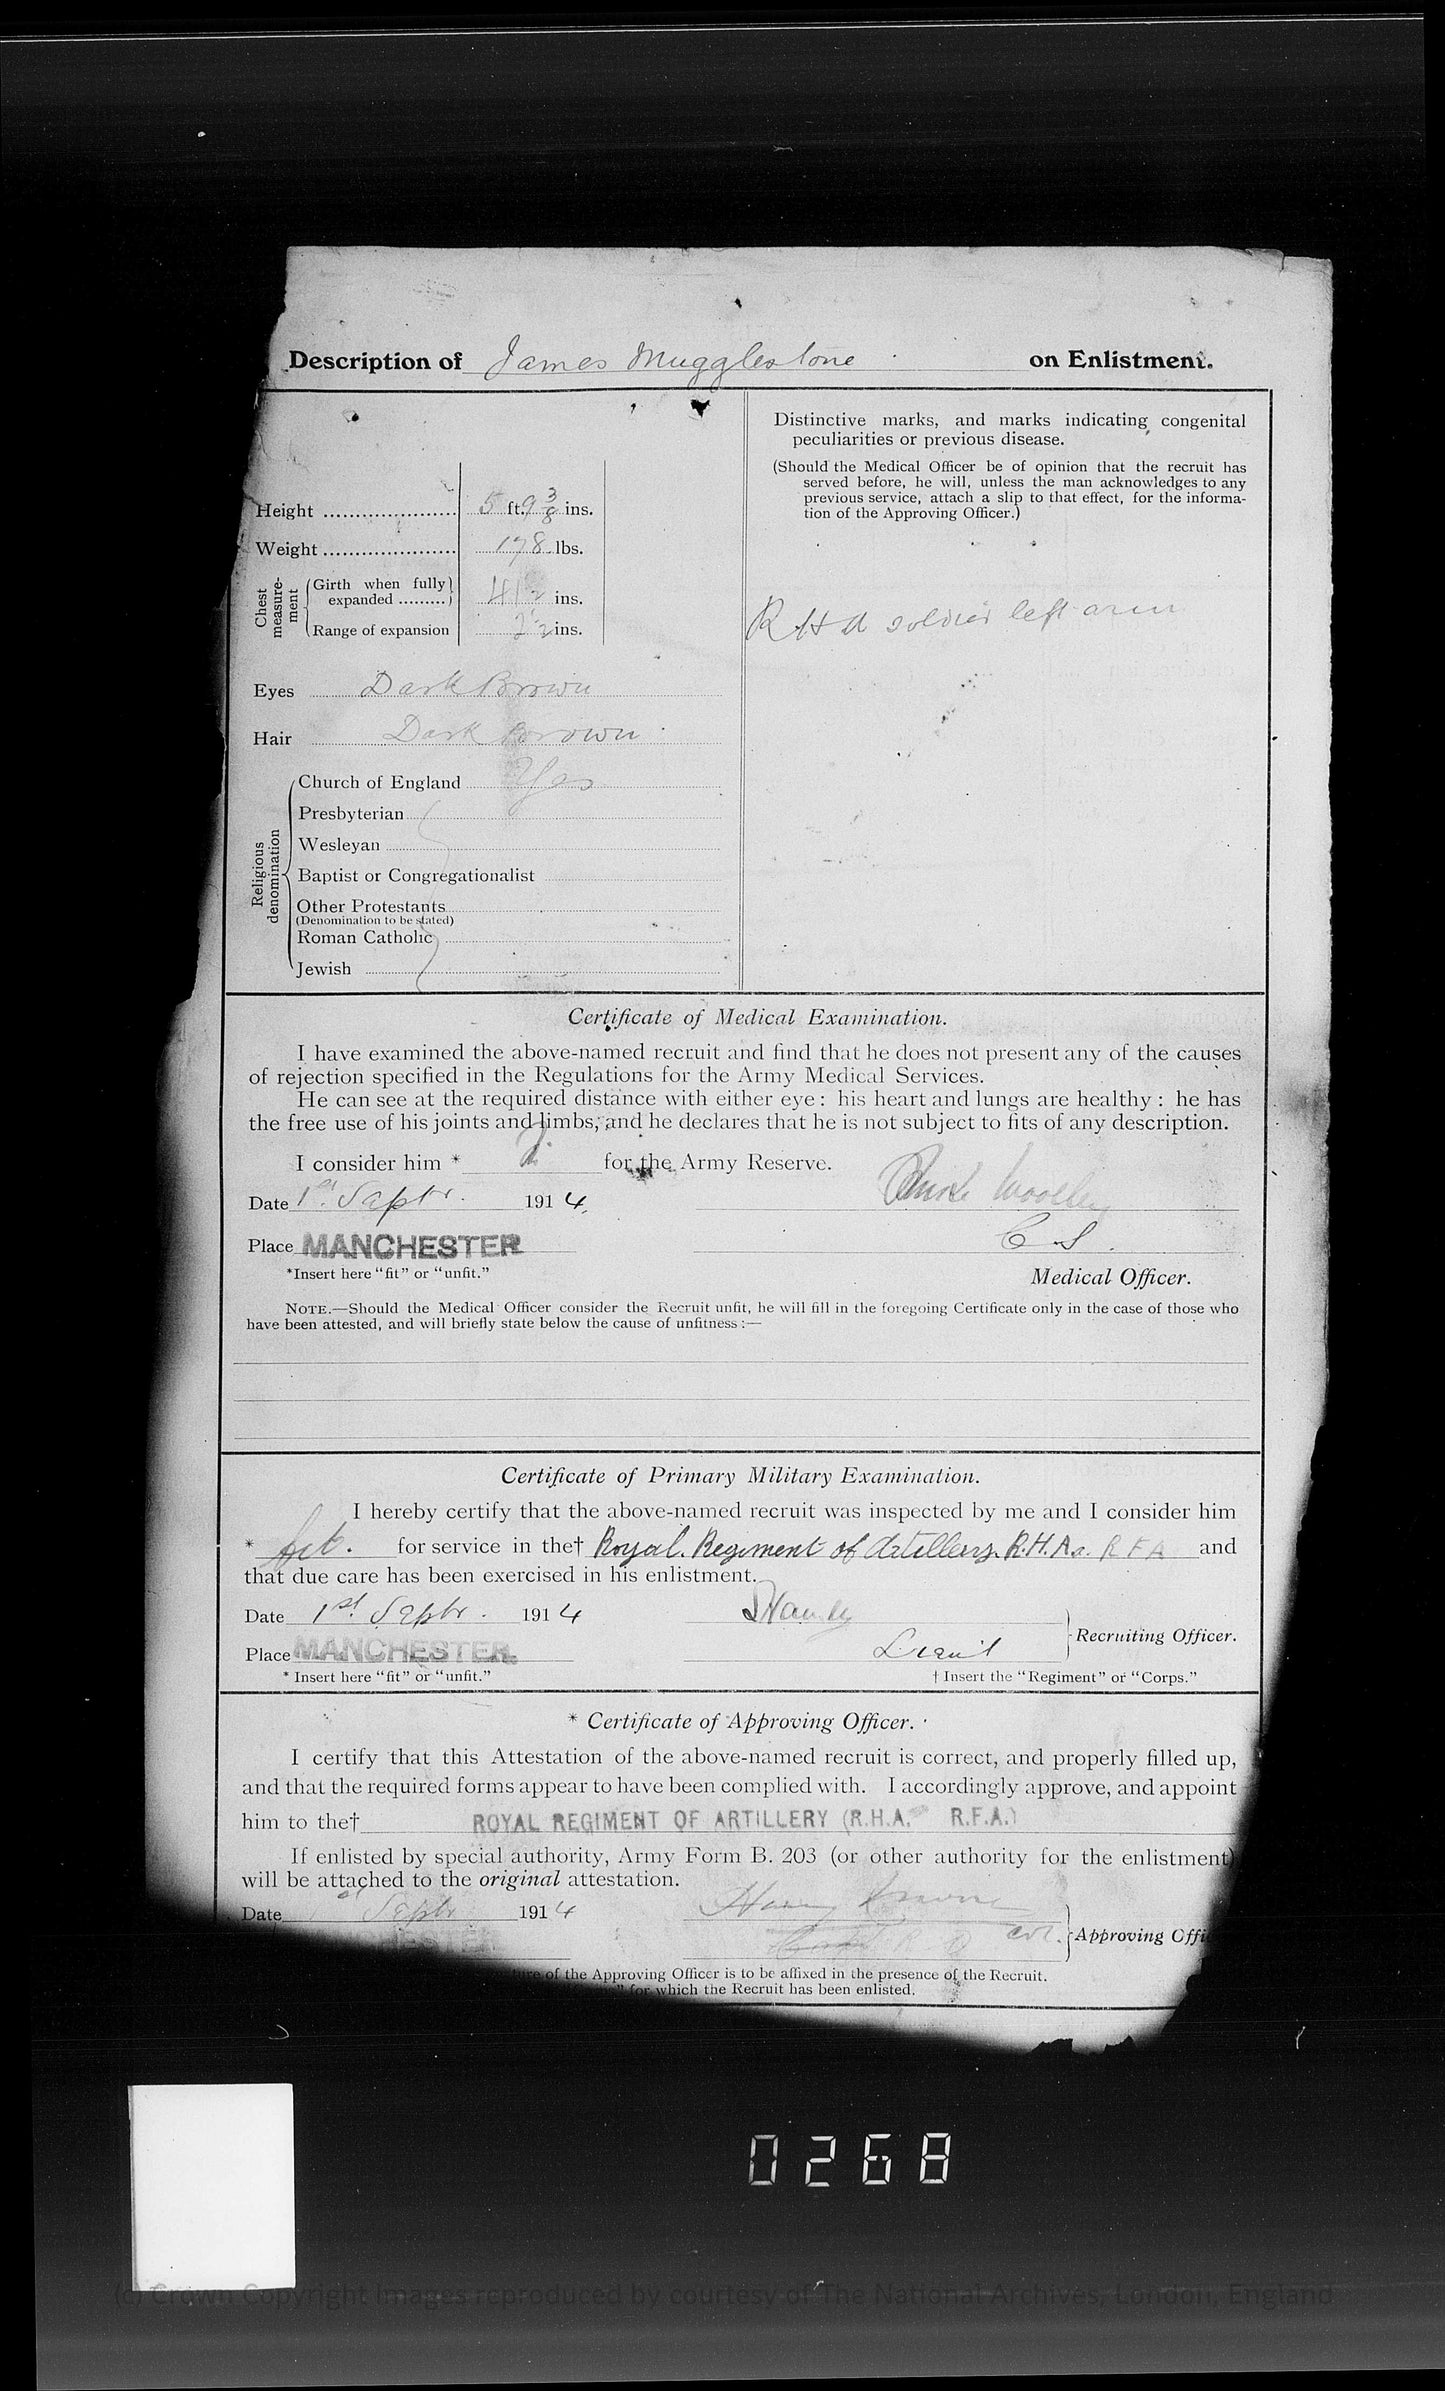 Description of James Mugglestone on Enlistment.
Distinctive marks, and marks indicating congenital
peculiarities or previous disease.
(Should the Medical Officer be of opinion that the recruit has
served before, he will, unless the man acknowledges to any
previous service, attach a slip to that effect, for the informa-
tion of the Approving Officer.)
Height 5 ft. 9 3/8 ins.
Weight 178 lbs.
Chest measure-ment
Girth when fully expanded 41 1/2 ins.
Range of expansion 2 1/2 ins.
R H A soldier left arm
Eyes Dark Brown
Hair Dark Brown
Religious denomination
Church of England Yes
Presbyterian
Wesleyan
Baptist or Congregationalist
Other Protestants
(Denomination to be stated)
Roman Catholic
Jewish
Certificate of Medical Examination.
I have examined the above-named recruit and find that he does not present any of the causes
of rejection specified in the Regulations for the Army Medical Services.
He can see at the required distance with either eye: his heart and lungs are healthy: he has
the free use of his joints and limbs, and he declares that he is not subject to fits of any description.
I consider him * for the Army Reserve.
Date 1st Septr. 1914.
Place MANCHESTER
C S.
*Insert here "fit" or "unfit."
Medical Officer.
NOTE.—Should the Medical Officer consider the Recruit unfit, he will fill in the foregoing Certificate only in the case of those who
have been attested, and will briefly state below the cause of unfitness:—
Certificate of Primary Military Examination.
I hereby certify that the above-named recruit was inspected by me and I consider him
* fit. for service in the† Royal. Regiment of Artillery. R.H.A. R F A and
that due care has been exercised in his enlistment.
Date 1st. Septr. 1914
Place MANCHESTER.
Lieut
Recruiting Officer.
* Insert here "fit" or "unfit."
† Insert the "Regiment" or "Corps."
* Certificate of Approving Officer.
I certify that this Attestation of the above-named recruit is correct, and properly filled up,
and that the required forms appear to have been complied with. I accordingly approve, and appoint
him to the† ROYAL REGIMENT OF ARTILLERY (R.H.A. R.F.A.)
If enlisted by special authority, Army Form B. 203 (or other authority for the enlistment)
will be attached to the original attestation.
Date Septr 1914
Col. Approving Offi
of the Approving Officer is to be affixed in the presence of the Recruit.
for which the Recruit has been enlisted.
0268
(c) Crown Copyright Images reproduced by courtesy of The National Archives, London, England